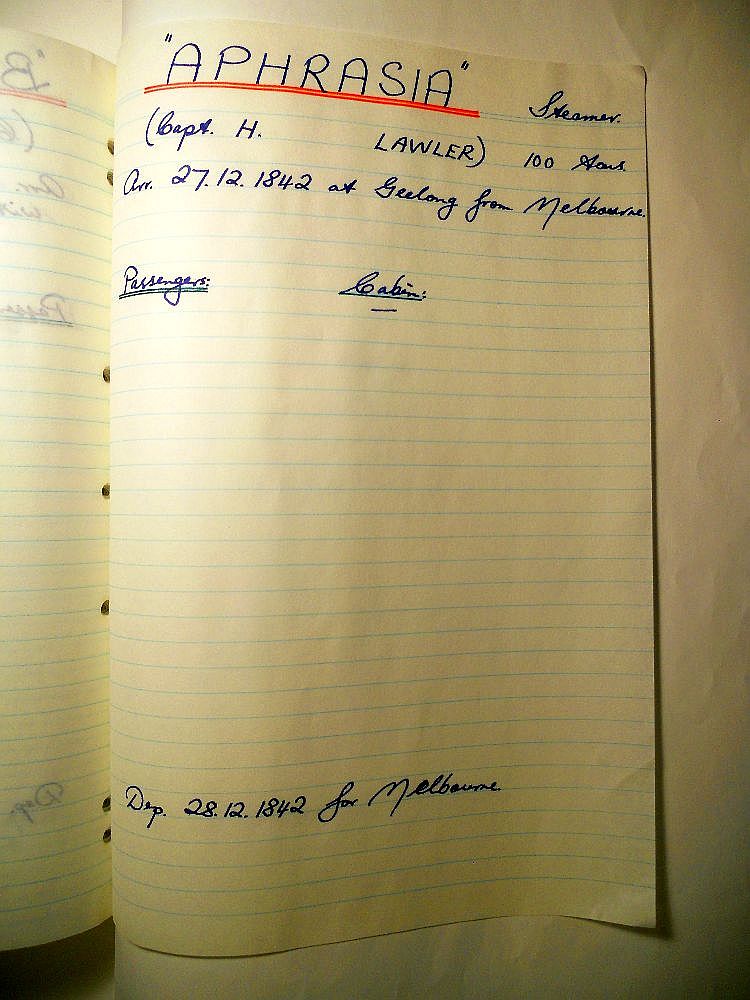 "APHRASIA" Steamer.
(Capt. H. LAWLER) 100 tons
Arr. 27.12.1842 at Geelong from Melbourne.
Passengers: Cabin:
—
Dep. 28.12.1842 for Melbourne.